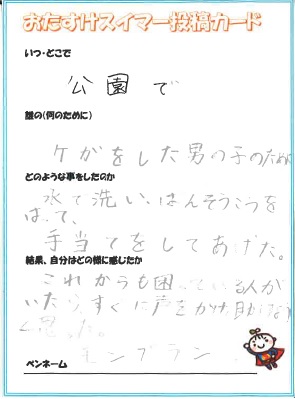 おたすけスイマー投稿カード
いつ・どこで
公園で
誰の(何のために)
ケがをした男の子のため
どのような事をしたのか
水で洗い、ばんそうこうを
はって、
手当てをしてあげた。
結果、自分はどの様に感じたか
これからも困っている人が
いたら、すぐに声をかけ助けなう
と思った。
ペンネーム
モンブラン